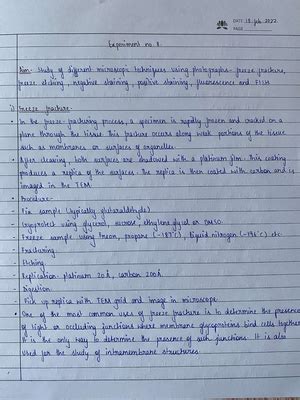 DATE 18 feb 2022
PAGE
Experiment no. 8
Aim- Study of different microscopic techniques using photographs- freeze fracture,
freeze etching, negative staining, positive staining, fluorescence and FISH
1) Freeze fracture-
• In the freeze-fracturing process, a specimen is rapidly frozen and cracked on a
plane through the tissue. This fracture occurs along weak portions of the tissue
such as membranes or surfaces of organelles.
• After cleaving, both surfaces are shadowed with a platinum film. This coating
produces a replica of the surfaces. The replica is then coated with carbon and is
imaged in the TEM.
• Procedure-
- Fix sample (typically glutaraldehyde)
- Cryoprotect using glycerol, sucrose, ethylene glycol or DMSO.
- Freeze sample using freon, propane (-185°C), liquid nitrogen (-196°C) etc.
- Fracturing.
- Etching.
- Replication- platinum 20Å, carbon 200Å
- Digestion
- Pick up replica with TEM grid and image in microscope.
• One of the most common uses of freeze fracture is to determine the presence
of tight or occluding junctions where membrane glycoproteins bind cells together.
It is the only way to determine the presence of such junctions. It is also
used for the study of intramembrane structures.